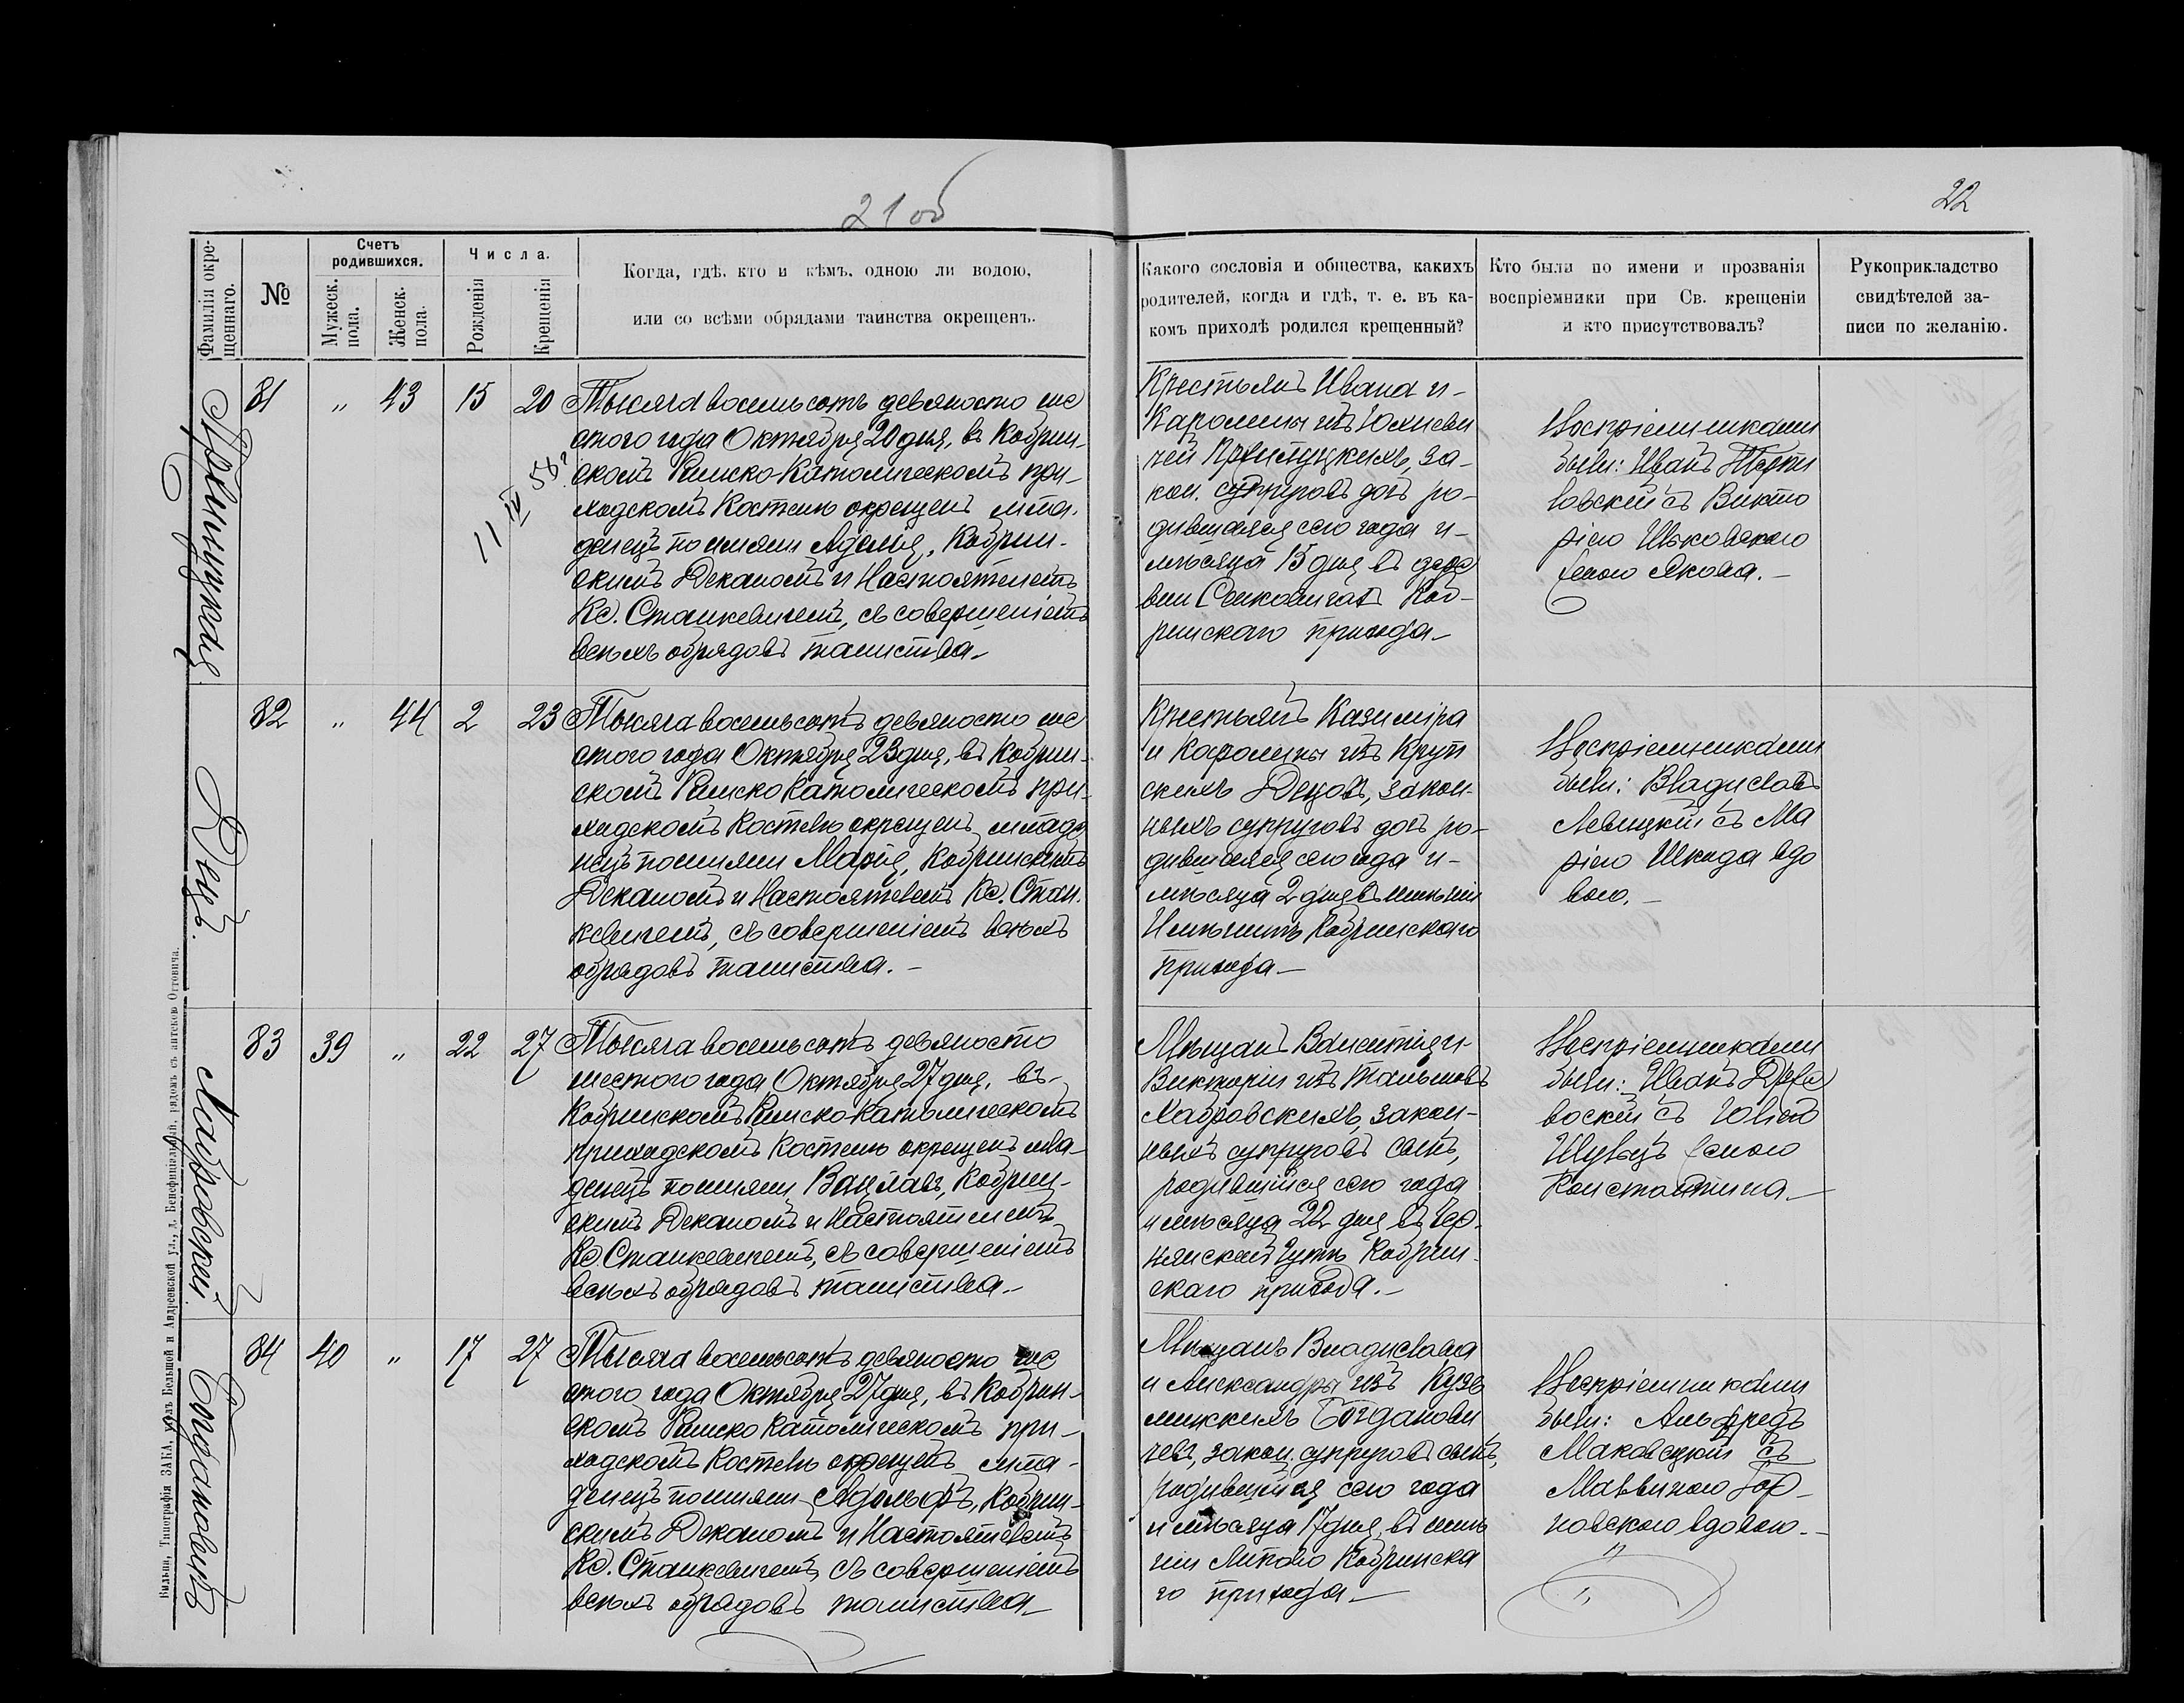 21об
22
Фамилія окре-
щеннаго.
№
Счетъ
родившихся.
Мужеск.
пола.
Женск.
пола.
Числа.
Рожденія
Крещенія
Когда, гдѣ, кто и кѣмъ, одною ли водою,
или со всѣми обрядами таинства окрещенъ.
Какого сословія и общества, какихъ
родителей, когда и гдѣ, т. е. въ ка-
комъ приходѣ родился крещенный?
Кто были по имени и прозванія
воспріемники при Св. крещеніи
и кто присутствовалъ?
Рукоприкладство
свидѣтелей за-
писи по желанію.
81 " 43 15 20
11 IV 58?
Тысяча восемьсотъ девяносто ше
стого года Октября 20 дня, въ Кобрин-
скомъ Римско-Католическомъ при-
ходскомъ Костелѣ окрещенъ мла-
денецъ по имени Аделія, Кобрин-
скимъ Деканомъ и Настоятелемъ
Кс. Станкевичемъ, съ совершеніемъ
всѣхъ обрядовъ таинства.
Крестьянъ Ивана и
Каролины изъ Юхневи
чей Прилуцкихъ, за-
кон. супруговъ дочь ро-
дившаяся сего года и
мѣсяца 15 дня въ дере
вни Коб-
ринскаго прихода
Воспріемниками
были: Иванъ
съ Викто
ріею
женою Якова.
82 " 44 2 23
Децъ.
Тысяча восемьсотъ девяносто ше
стого года Октября 23 дня, въ Кобрин-
скомъ Римско Католическомъ при-
ходскомъ Костелѣ окрещенъ младе
нецъ по имени Марія, Кобринскимъ
Деканомъ и Настоятелемъ Кс. Стан-
кевичемъ, съ совершеніемъ всѣхъ
обрядовъ таинства.
Крестьянъ Казиміра
и Каролины изъ Круп
скихъ Децовъ, закон-
ныхъ супруговъ дочь ро-
дившаяся сего года и
мѣсяца 2 дня въ имѣніи
Кобринскаго
прихода
Воспріемниками
были: Владиславъ
Левицкій съ Ма
ріею Шкода вдо
вою.
83 39 " 22 27
Тысяча восемьсотъ девяносто
шестого года Октября 27 дня, въ
Кобринскомъ Римско-Католическомъ
приходскомъ Костелѣ окрещенъ мла-
денецъ по имени Вацлавъ, Кобрин-
скимъ Деканомъ и Настоятелемъ
Кс. Станкевичемъ, съ совершеніемъ
всѣхъ обрядовъ таинства.
Мѣщанъ Викентія и
Викторіи изъ
закон-
ныхъ супруговъ сынъ,
родившійся сего года
и мѣсяца 22 дня въ
Кобрин-
скаго прихода.
Воспріемниками
были: Иванъ
съ Юліею
женою
Константина.
84 40 " 17 27
Богдановичъ
Тысяча восемьсотъ девяносто ше
стого года Октября 27 дня, въ Кобрин-
скомъ Римско Католическомъ при-
ходскомъ Костелѣ окрещенъ мла-
денецъ по имени Адольфъ, Кобрин-
скимъ Деканомъ и Настоятелемъ
Кс. Станкевичемъ, съ совершеніемъ
всѣхъ обрядовъ таинства
Мѣщанъ Владислава
и Александры изъ Кузь
минскихъ Богданови
чевъ, закон. супруговъ сынъ,
родившійся сего года
и мѣсяца 17 дня, въ имѣ
ніи Липово Кобринска
го прихода.
Воспріемниками
были: Альфредъ
Маковецкій съ
Мальвиною
вдовою.
Вильна, Типографія ЗАКА, уголъ Большой и Андреевской ул., д. Бенефиціальный, рядомъ съ аптекою Оттовича.